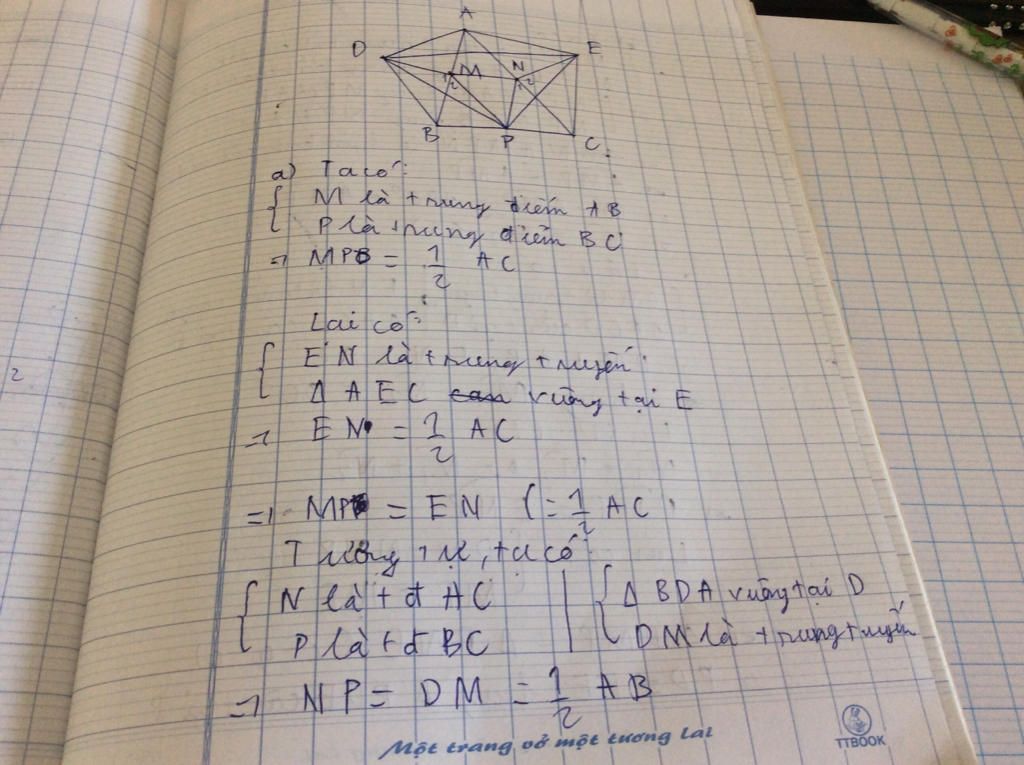 A
D E
M N
1 2 1 2
B P C
a) Ta có:
M là trung điểm AB
P là trung điểm BC
=> MP = 1/2 AC
Lại có:
EN là trung tuyến
Δ AEC vuông tại E
=> EN = 1/2 AC
=> MP = EN (= 1/2 AC
Tương tự, ta có
N là tđ AC | Δ BDA vuông tại D
P là tđ BC | DM là trung tuyến
=> NP = DM = 1/2 AB
2
Một trang vở một tương lai
TTBOOK